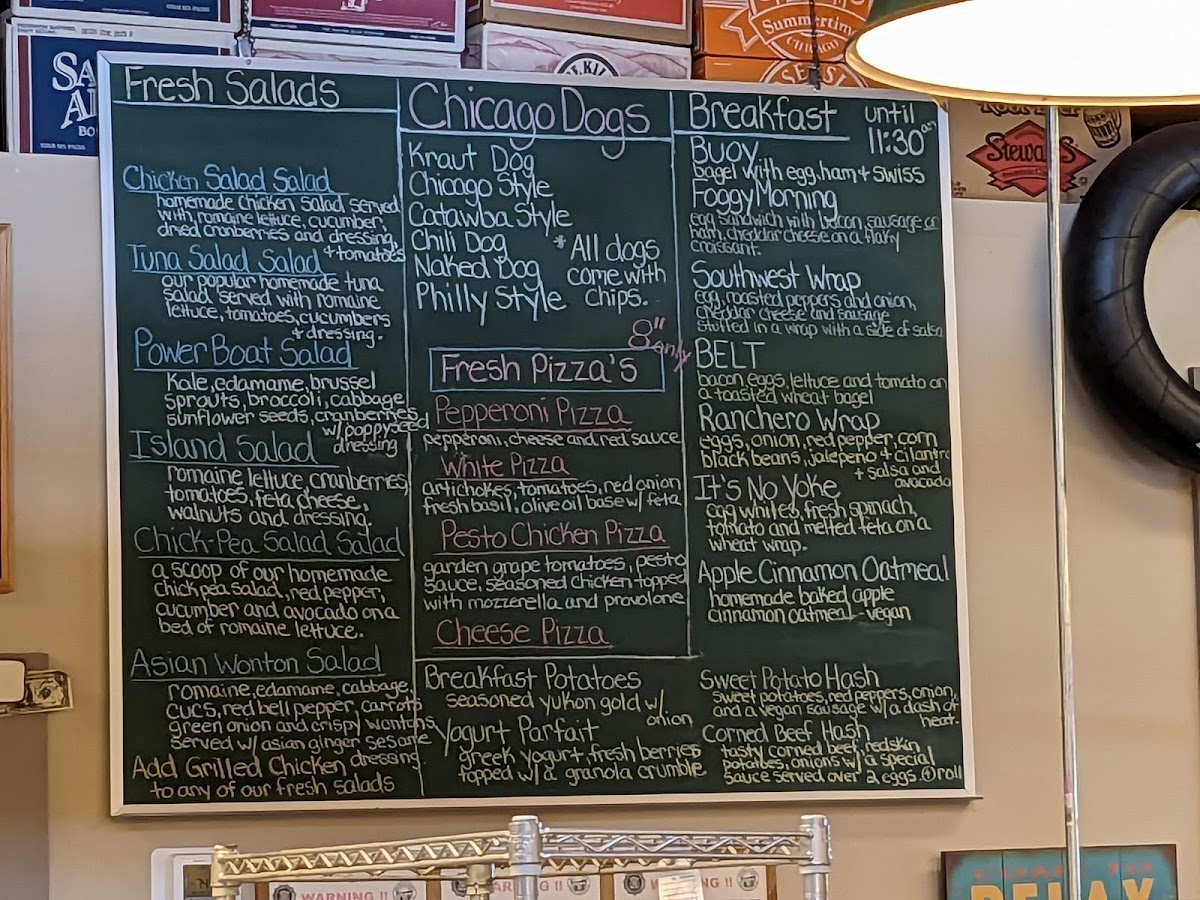 SA
AI
BO
Summertime
CHICAGO
Stewart's
Fresh Salads
Chicken Salad Salad
homemade chicken salad served
with, romaine lettuce, cucumber,
dried cranberries and dressing,
+ tomatoes
Tuna Salad Salad
our popular homemade tuna
salad served with romaine
lettuce, tomatoes, cucumbers
+ dressing.
Power Boat Salad
Kale, edamame, brussel
sprouts, broccoli, cabbage
sunflower seeds, cranberries
w/ poppyseed
dressing
Island Salad
romaine lettuce, cranberries,
tomatoes, feta cheese,
walnuts and dressing.
Chick-Pea Salad Salad
a scoop of our homemade
chick pea salad, red pepper,
cucumber and avocado on a
bed of romaine lettuce.
Asian Wonton Salad
romaine, edamame, cabbage,
cucs, red bell pepper, carrots
green onion and crispy wontons
served w/ asian ginger sesame
dressing
Add Grilled Chicken
to any of our fresh salads
Chicago Dogs
Kraut Dog
Chicago Style
Catawba Style
Chili Dog
Naked Dog
Philly Style
* All dogs
come with
chips.
8" only
Fresh Pizza's
Pepperoni Pizza
pepperoni, cheese and red sauce
White Pizza
artichokes, tomatoes, red onion
fresh basil, olive oil base w/ feta
Pesto Chicken Pizza
garden grape tomatoes, pesto
sauce, seasoned chicken topped
with mozzerella and provolone
Cheese Pizza
Breakfast Potatoes
seasoned yukon gold w/
onion
Yogurt Parfait
greek yogurt, fresh berries
topped w/ a granola crumble
Breakfast until
11:30 am
Buoy
bagel with egg, ham + swiss
Foggy Morning
egg sandwich with bacon, sausage or
ham, cheddar cheese on a flaky
croissant.
Southwest Wrap
egg, roasted peppers and onion,
cheddar cheese and sausage
stuffed in a wrap with a side of salsa
BELT
bacon, eggs, lettuce and tomato on
a toasted wheat bagel
Ranchero Wrap
eggs, onion, red pepper, corn
black beans, jalepeño + cilantro
+ salsa and
avocado
It's No Yoke
egg whites, fresh spinach,
tomato and melted feta on a
wheat wrap.
Apple Cinnamon Oatmeal
homemade baked apple
cinnamon oatmeal - vegan
Sweet Potato Hash
sweet potatoes, red peppers, onion,
and a vegan sausage w/ a dash of
heat.
Corned Beef Hash
tasty corned beef, redskin
potatoes, onions w/ a special
sauce served over 2 eggs + roll
WARNING !!
WARNING !!
WARNING !!
RELAX